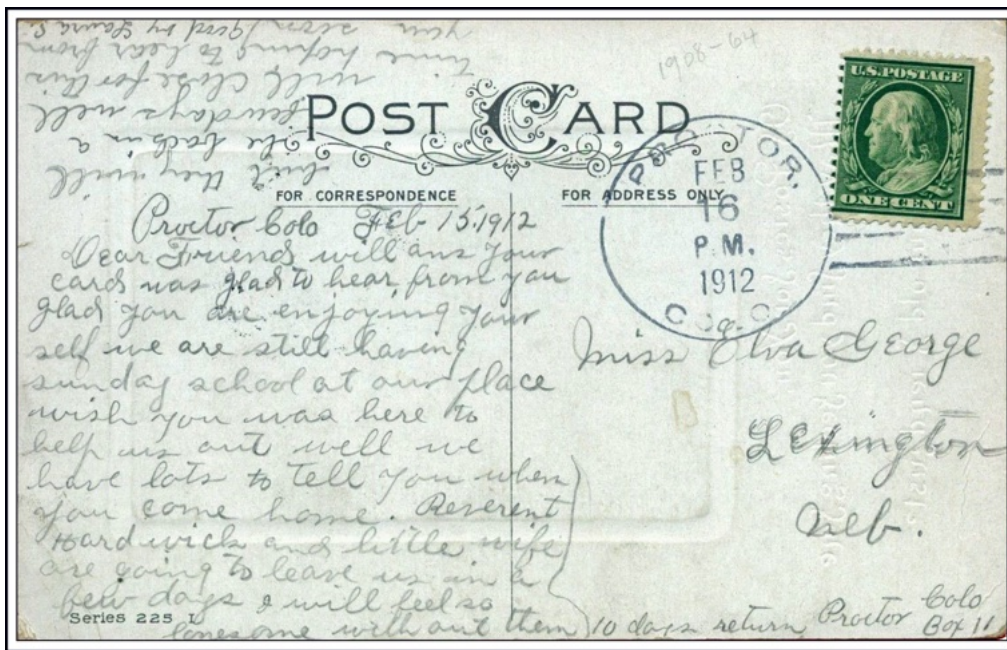 1908-64
POST CARD
FOR CORRESPONDENCE
FOR ADDRESS ONLY
U.S. POSTAGE
ONE CENT
PROCTOR,
FEB
16
P.M.
1912
COLO.
Proctor Colo Feb 15.1912
Dear Friends will ans your
card was glad to hear from you
glad you are enjoying your
self we are still having
sunday school at our place
wish you was here to
help us out well we
have lots to tell you when
you come home. Reverent
Hardwick and little wife
are going to leave us in a
few days I will feel so
lonesome without them
but they will
be back in a
few days well
will close for this
time hoping to hear from
you soon good by Laura S.
Miss Elva George
Lexington
Neb.
10 days return Proctor Colo
Box 11
Series 225 I